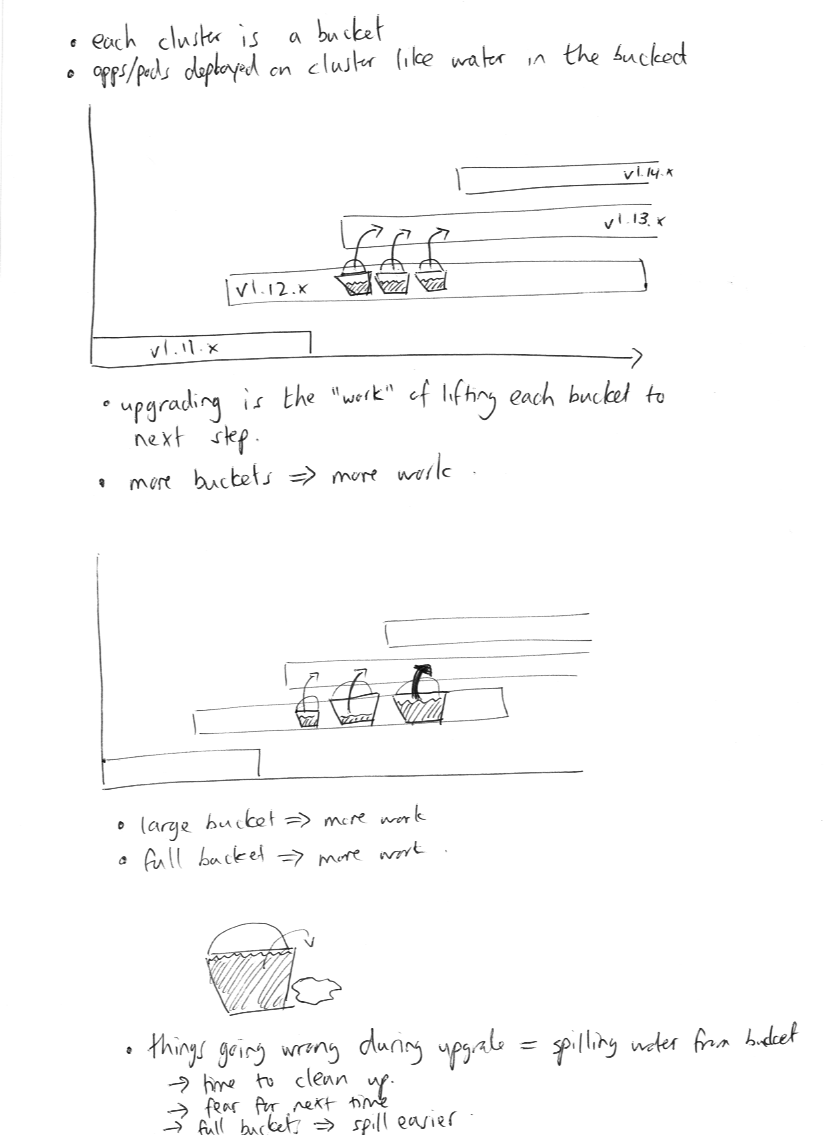 • each cluster is a bucket
• apps/pods deployed on cluster like water in the bucked
v1.14.x
v1.13.x
v1.12.x
v1.11.x
• upgrading is the "work" of lifting each bucket to
next step.
• more buckets => more work.
• large bucket => more work
• full bucket => more work.
• things going wrong during upgrade = spilling water from bucket
→ time to clean up.
→ fear for next time
→ full buckets => spill easier.